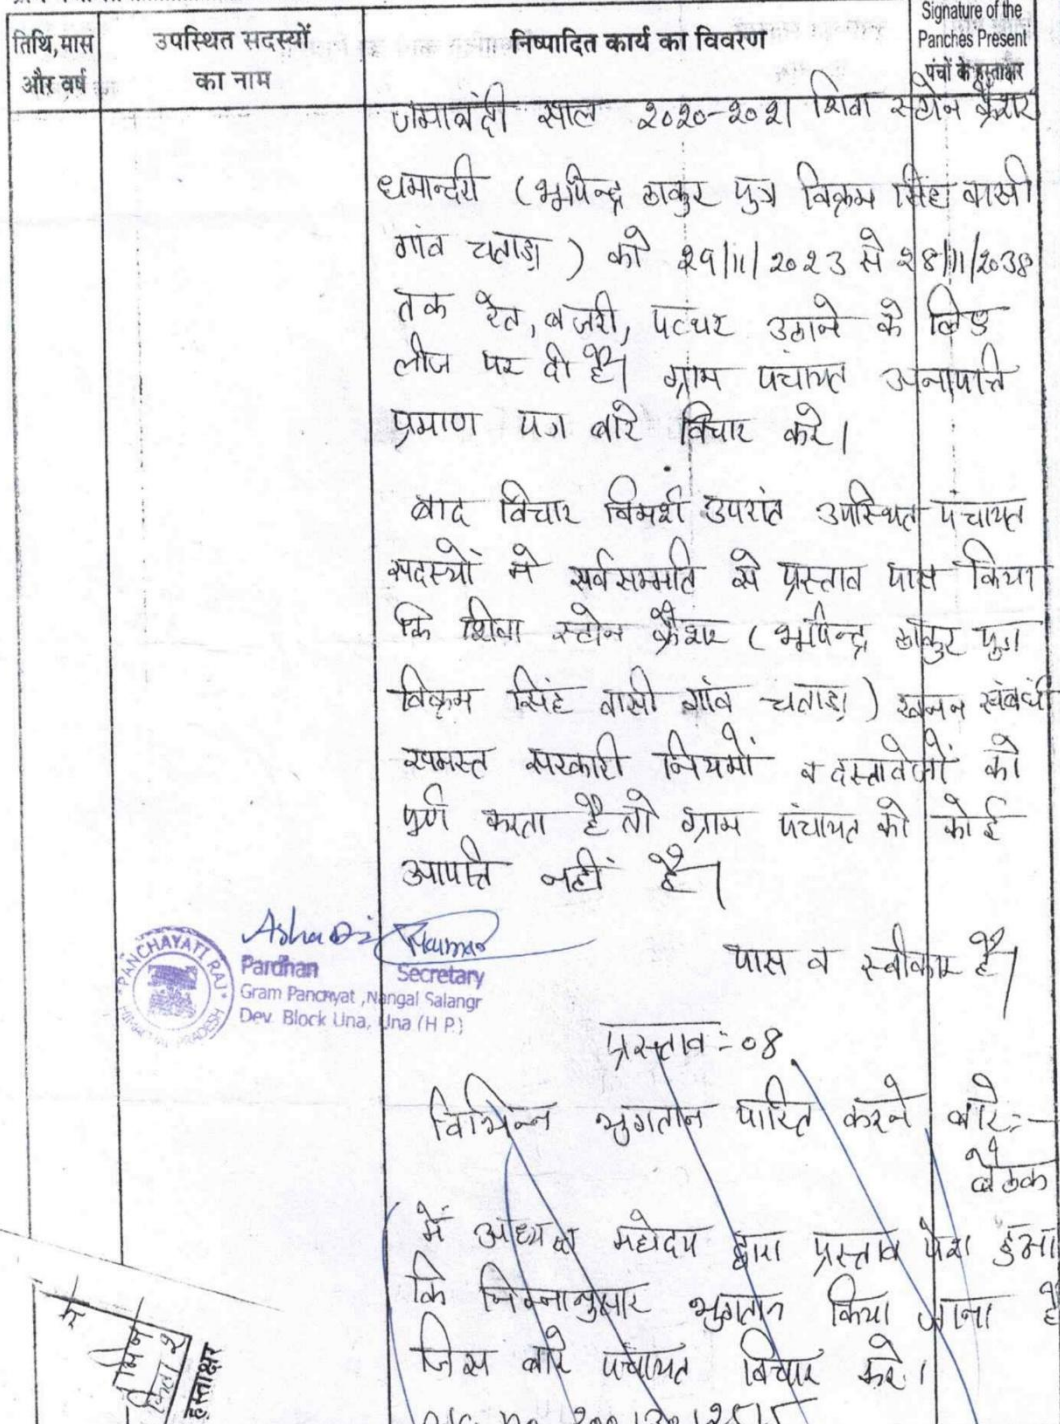 तिथि, मास
और वर्ष
उपस्थित सदस्यों
का नाम
निष्पादित कार्य का विवरण
Signature of the
Panches Present
पंचों के हस्ताक्षर
जमाबंदी साल २०२०-२०२१ शिवा स्टोन क्रैशर
धमान्दरी (भूपिन्द्र ठाकुर पुत्र विक्रम सिंह वासी
गांव चताड़ा) को २९/११/२०२३ से २८/११/२०३८
तक रेत, बजरी, पत्थर उठाने के लिए
लीज पर दी है। ग्राम पंचायत अनापत्ति
प्रमाण पत्र बारे विचार करे।
बाद विचार विमर्श उपरांत उपस्थित पंचायत
सदस्यों ने सर्वसम्मति से प्रस्ताव पास किया
कि शिवा स्टोन क्रैशर (भूपिन्द्र ठाकुर पुत्र
विक्रम सिंह वासी गांव चताड़ा) खनन संबंधी
समस्त सरकारी नियमों व दस्तावेजों को
पूर्ण करता है तो ग्राम पंचायत को कोई
आपत्ति नहीं है।
पास व स्वीकार है।
PANCHAYATI RAJ
Asha Devi Kumar
Pardhan Secretary
Gram Panchayat, Nangal Salangri
Dev. Block Una, Una (H.P.)
प्रस्ताव :- ०8
विभिन्न भुगतान पारित करने बारे:-
बैठक
में अध्यक्ष महोदय द्वारा प्रस्ताव पेश हुआ
कि निम्नानुसार भुगतान किया जाना है
जिस बारे पंचायत विचार करे।
हस्ताक्षर